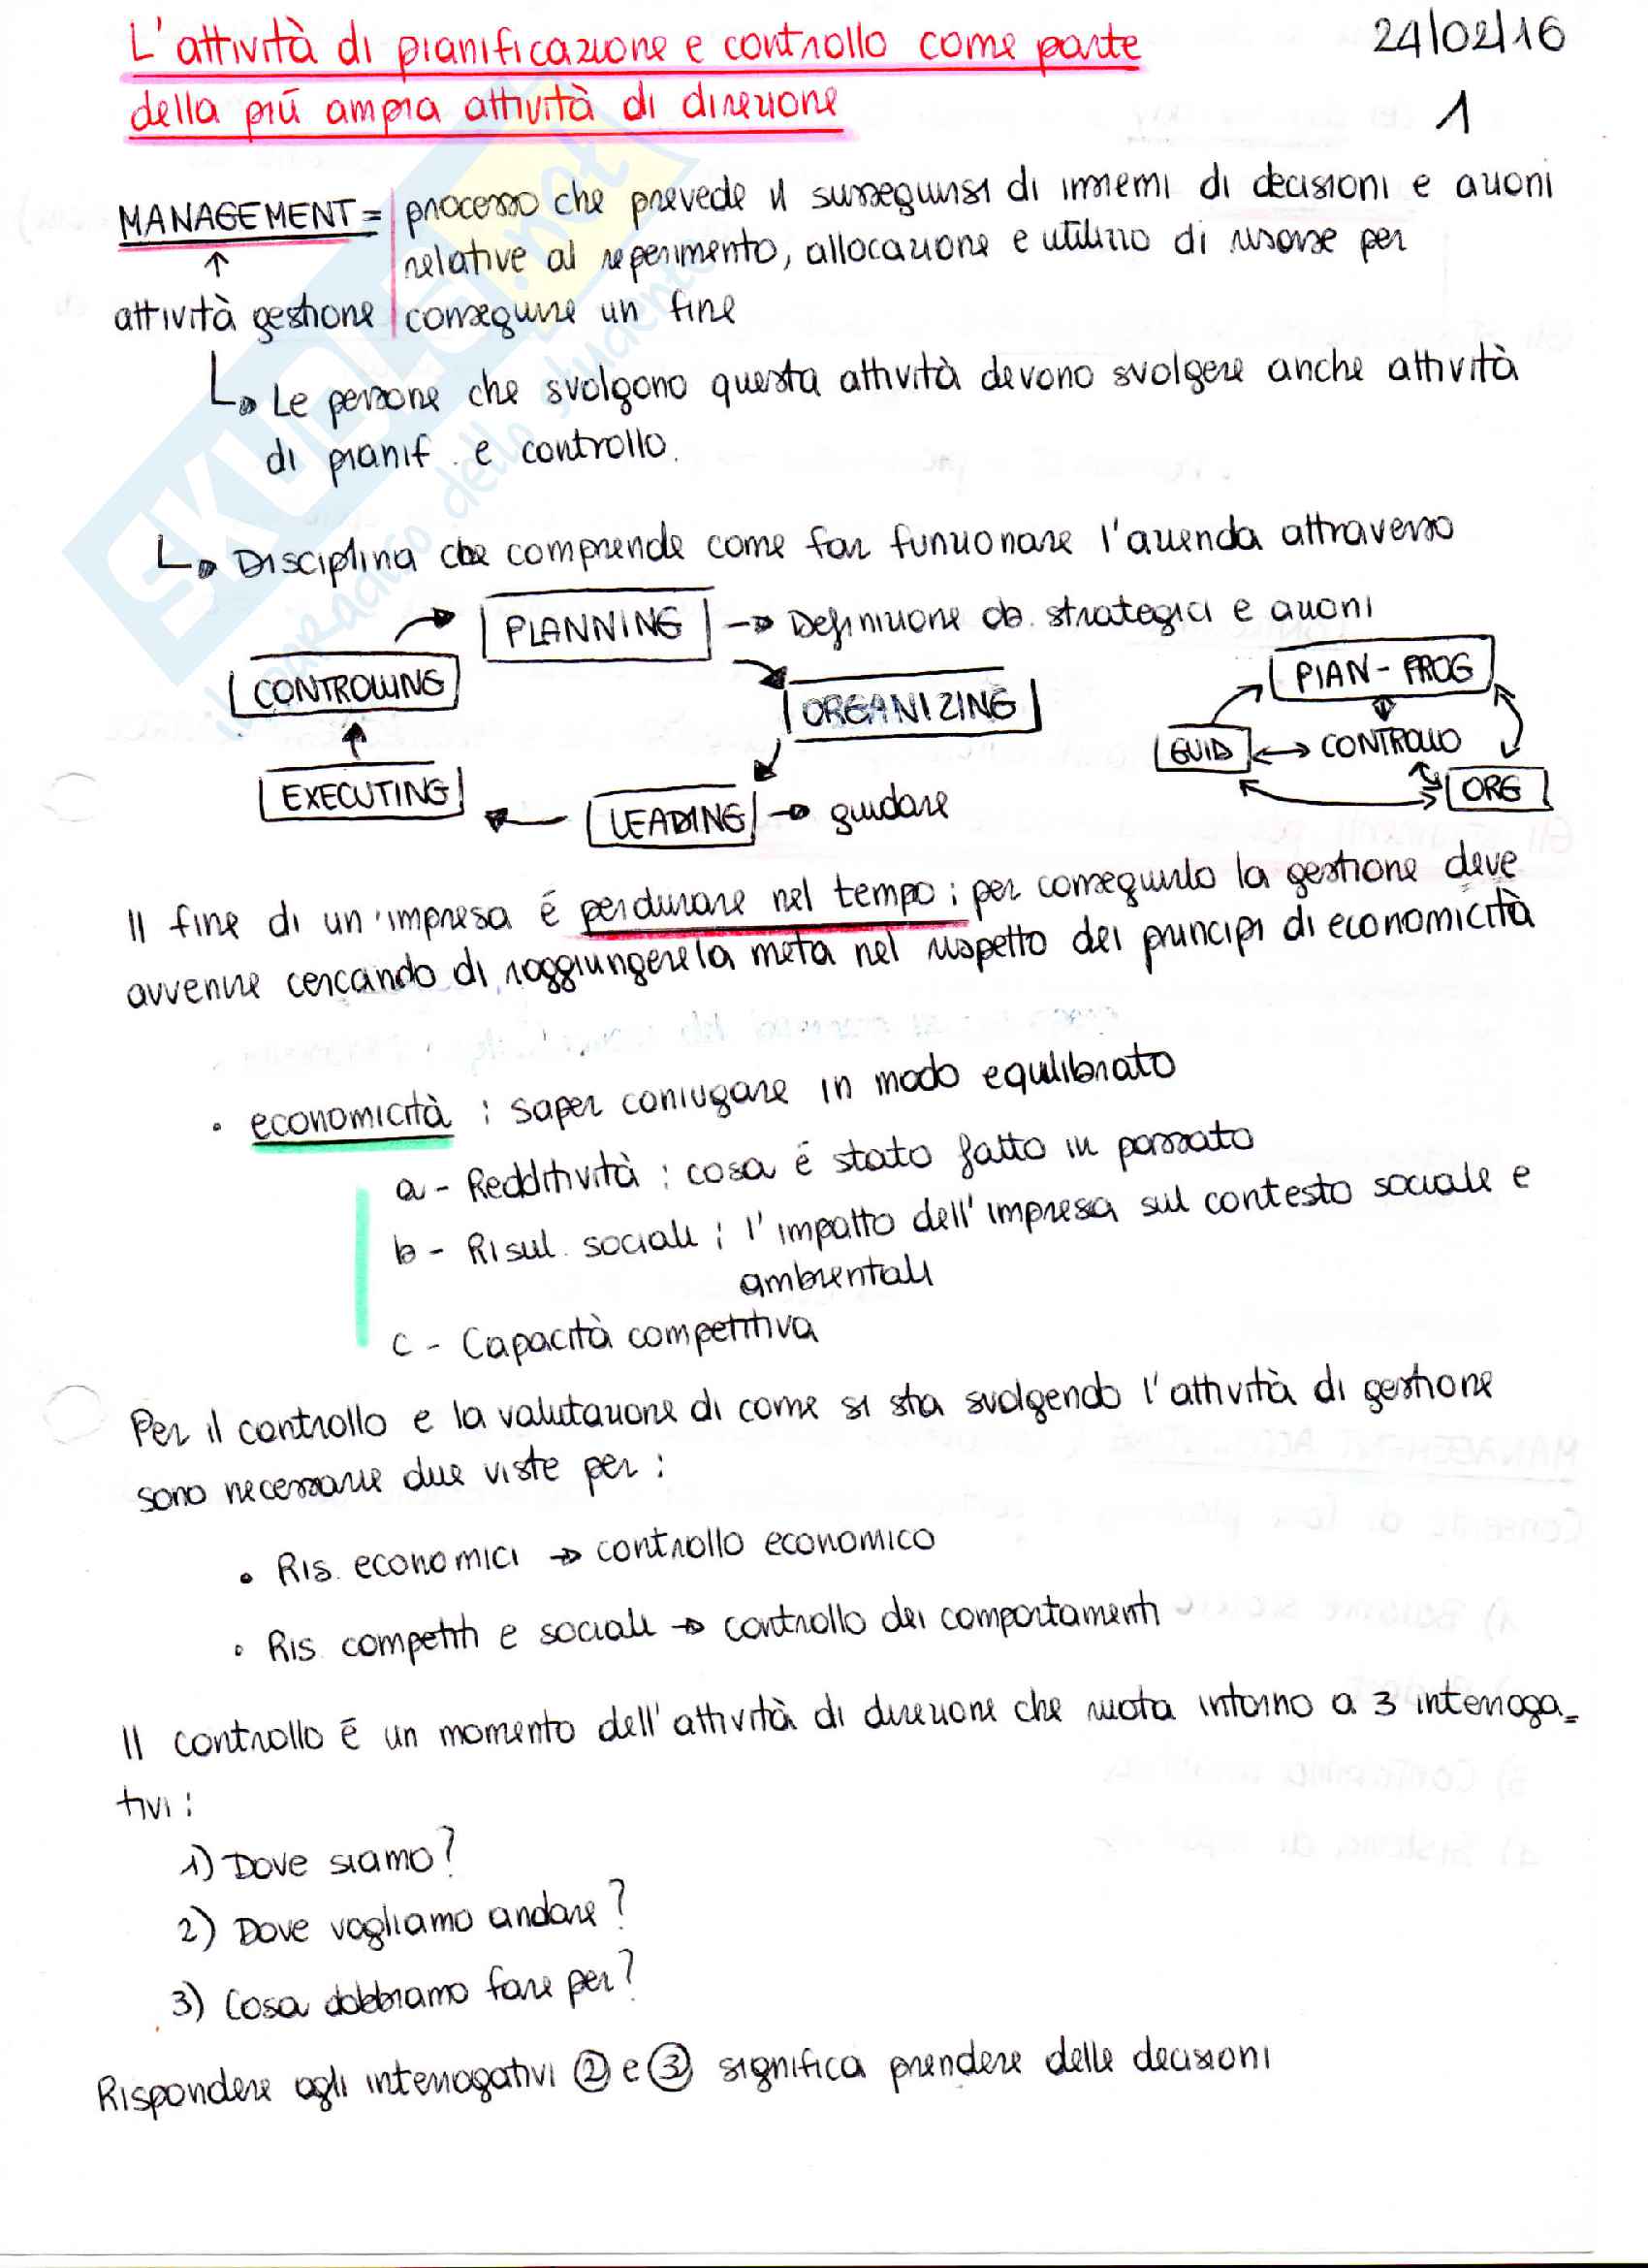 L'attività di pianificazione e controllo come parte
24/02/16
della più ampia attività di direzione
1
MANAGEMENT = processo che prevede il susseguirsi di insiemi di decisioni e azioni
relative al reperimento, allocazione e utilizzo di risorse per
attività gestione conseguire un fine
Le persone che svolgono questa attività devono svolgere anche attività
di pianif. e controllo.
Disciplina che comprende come far funzionare l'azienda attraverso
PLANNING → Definizione ob. strategici e azioni
CONTROLLING
ORGANIZING
PIAN - PROG
GUID ↔ CONTROLLO
EXECUTING
LEADING → guidare
ORG
Il fine di un'impresa é perdurare nel tempo; per conseguirlo la gestione deve
avvenire cercando di raggiungere la meta nel rispetto dei principi di economicità
• economicità : saper coniugare in modo equilibrato
a - Redditività : cosa é stato fatto in passato
b - Risul. sociali : l'impatto dell'impresa sul contesto sociale e
ambientali
c - Capacità competitiva
Per il controllo e la valutazione di come si sta svolgendo l'attività di gestione
sono necessarie due viste per :
• Ris. economici → controllo economico
• Ris. competiti e sociali → controllo dei comportamenti
Il controllo é un momento dell'attività di direzione che ruota intorno a 3 interroga=
tivi :
1) Dove siamo?
2) Dove vogliamo andare?
3) Cosa dobbiamo fare per?
Rispondere agli interrogativi ② e ③ significa prendere delle decisioni
SKUOLA.net
il paradiso dello studente